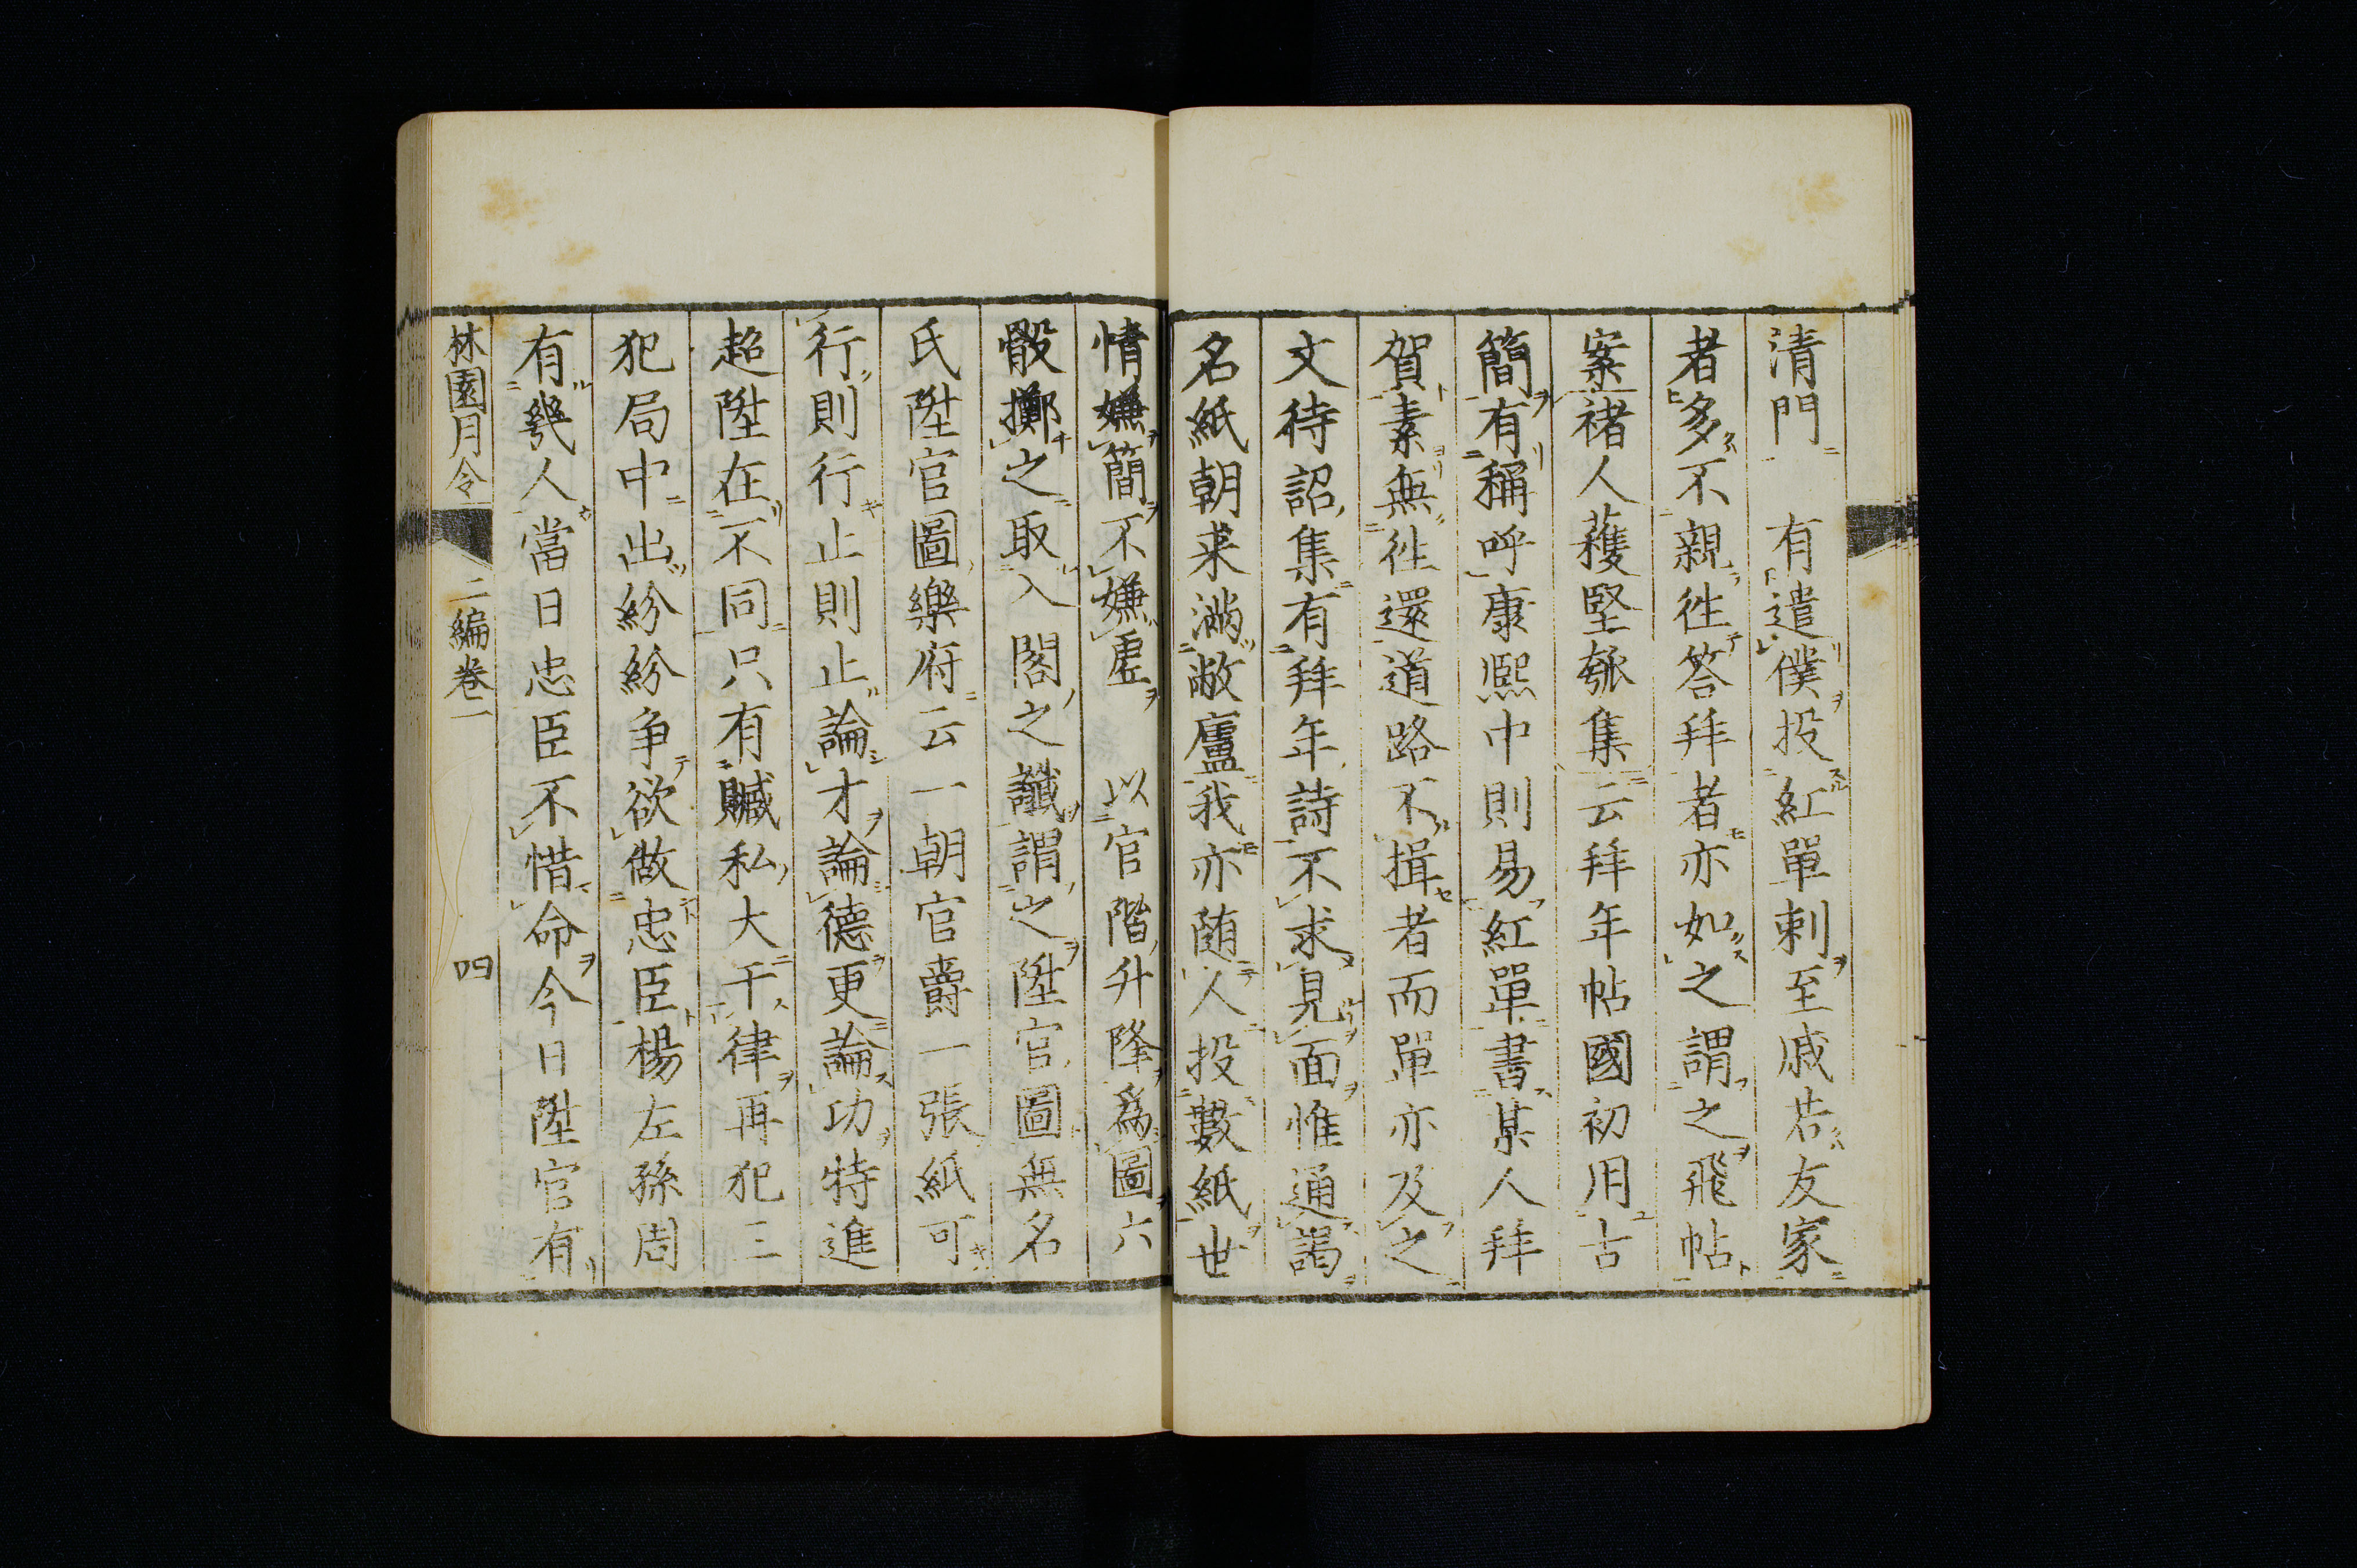 清門　有遣僕投紅單剌至戚若友家
者多不親徃答拜者亦如之謂之飛帖
案褚人穫堅瓠集云拜年帖國初用古
簡有稱呼康熙中則易紅單書某人拜
賀素無徃還道路不揖者而單亦及之
文待詔集有拜年詩不求見面惟通謁
名紙朝来滿敝廬我亦随人投數紙世
情嫌簡不嫌虚　以官階升降爲圖六
骰擲之取入閣之讖謂之陞官圖無名
氏陞官圖樂府云一朝官爵一張紙可
行則行止則止論才論德更論功特進
超陞在不同只有贓私大干律再犯三
犯局中出紛紛争欲做忠臣楊左孫周
有幾人當日忠臣不惜命今日陞官有
林園月令　二編卷一　四